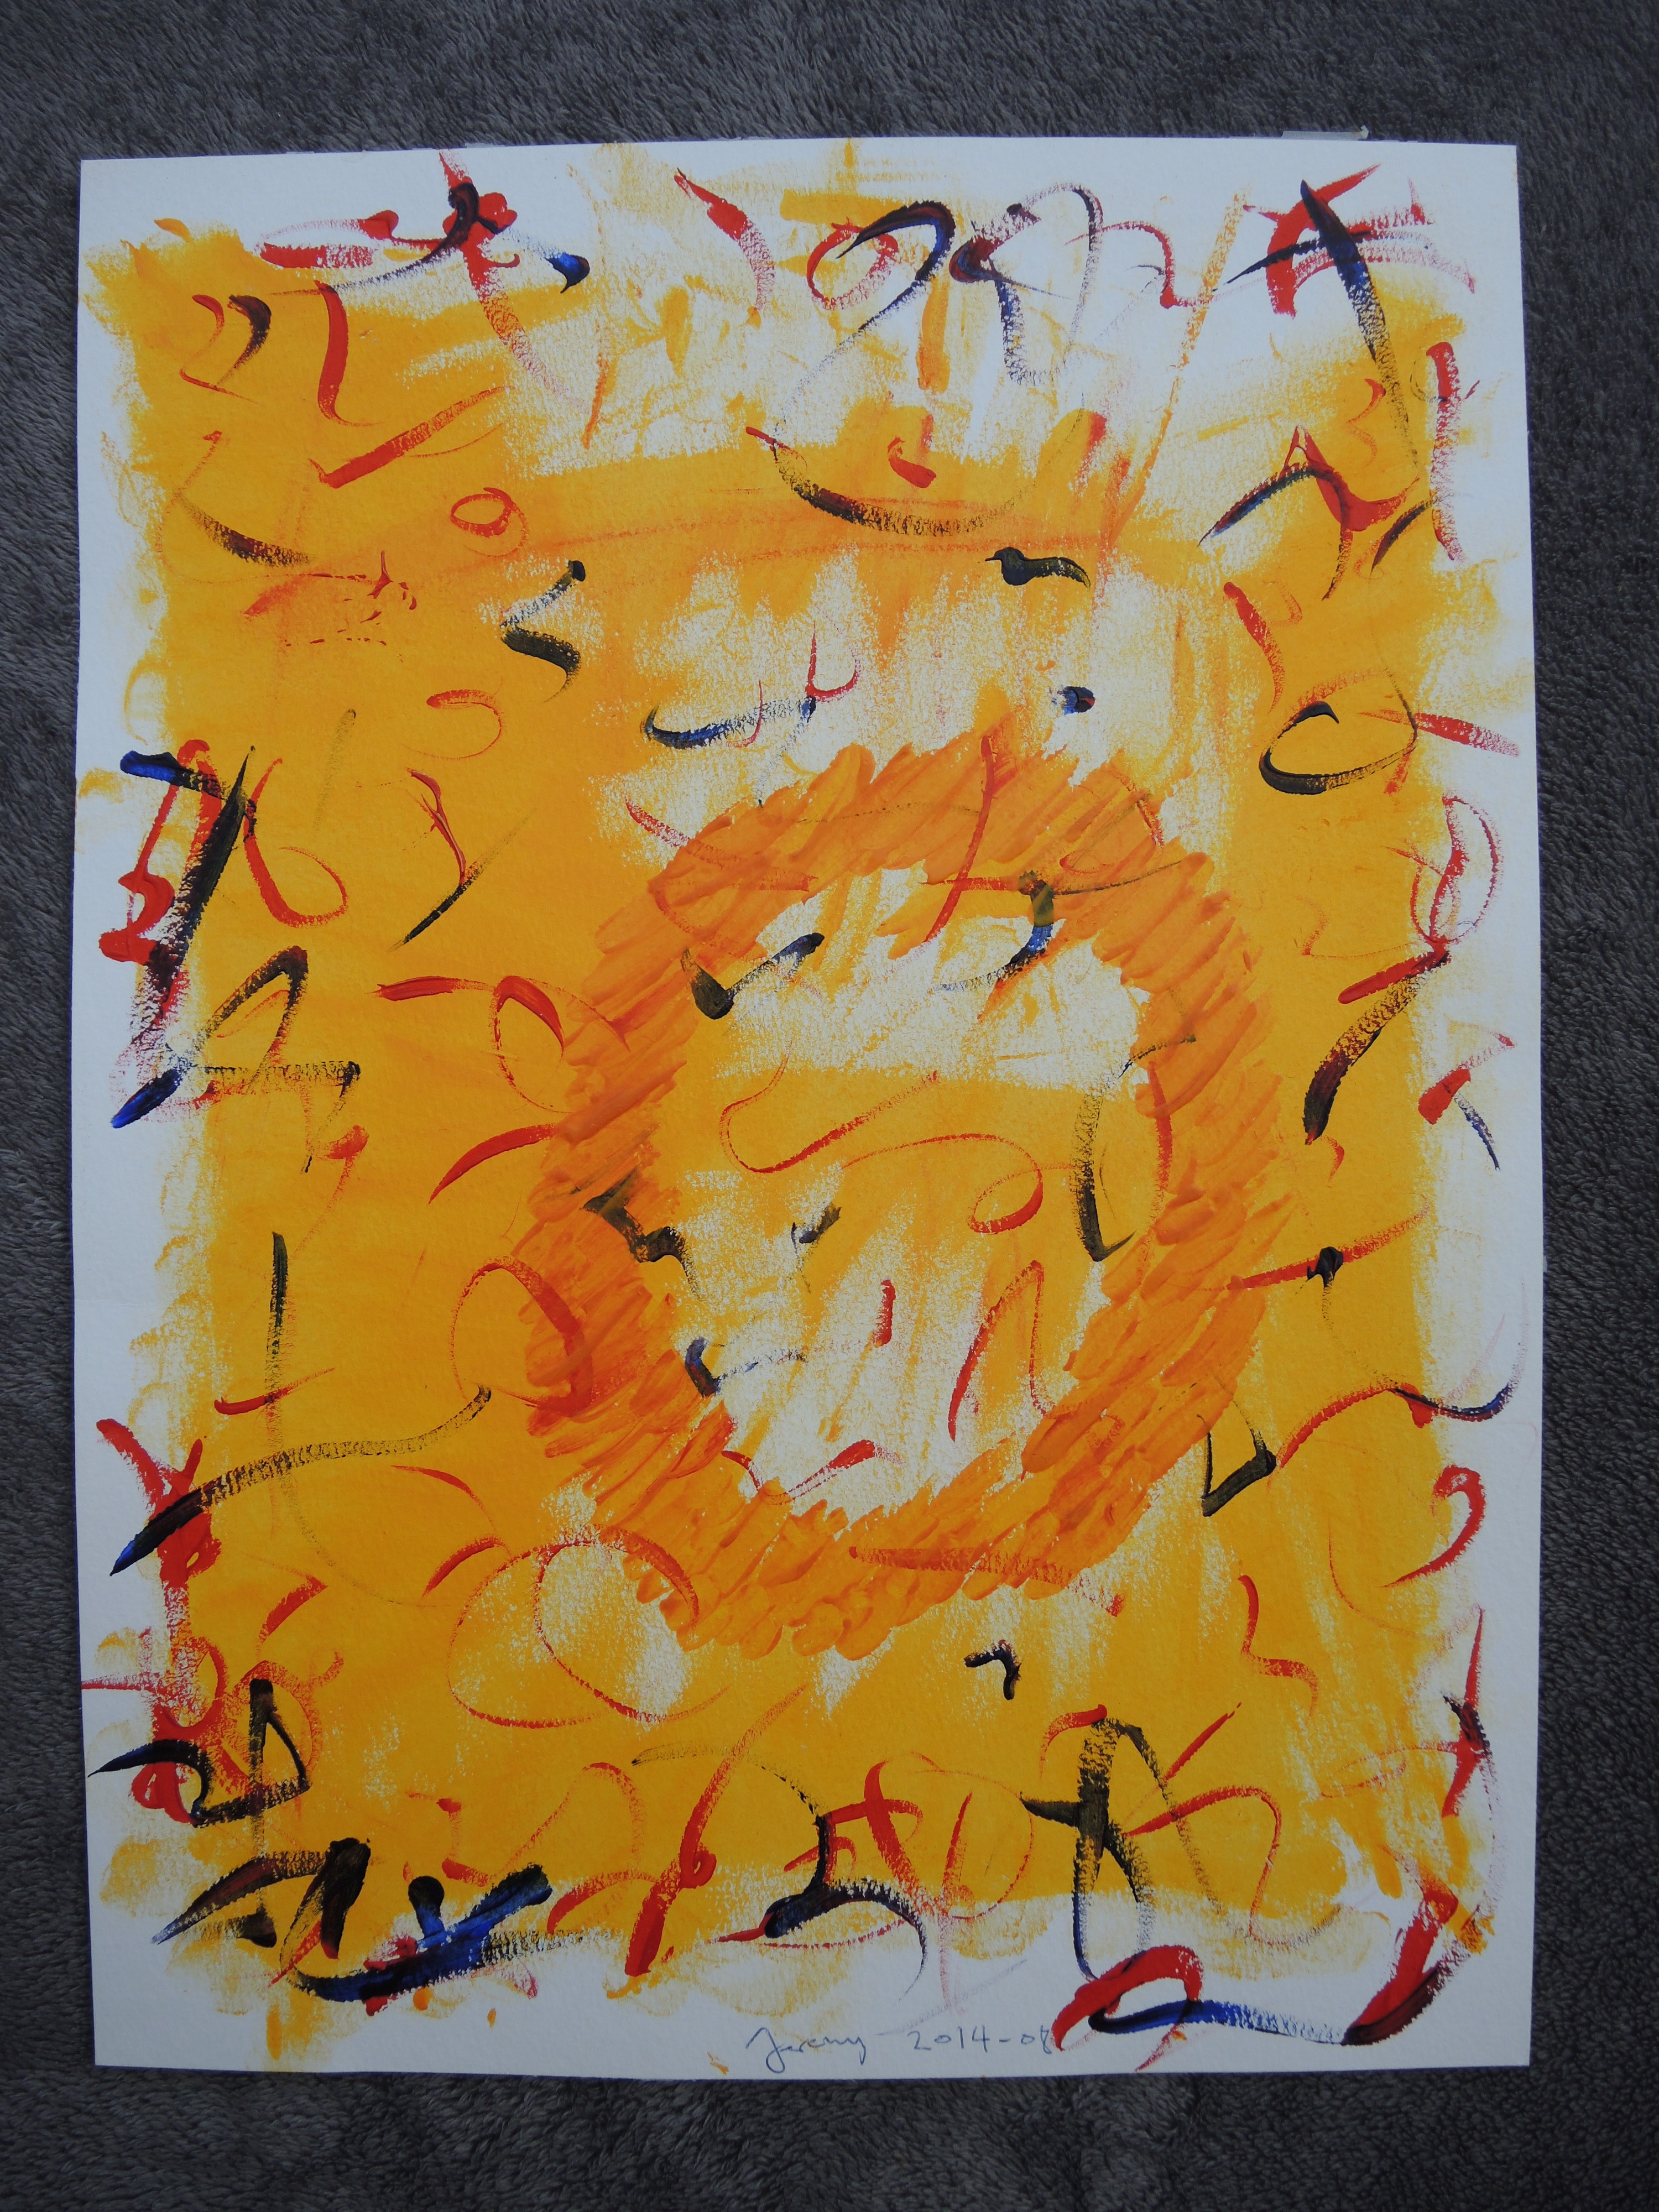 Jeremy 2014-08